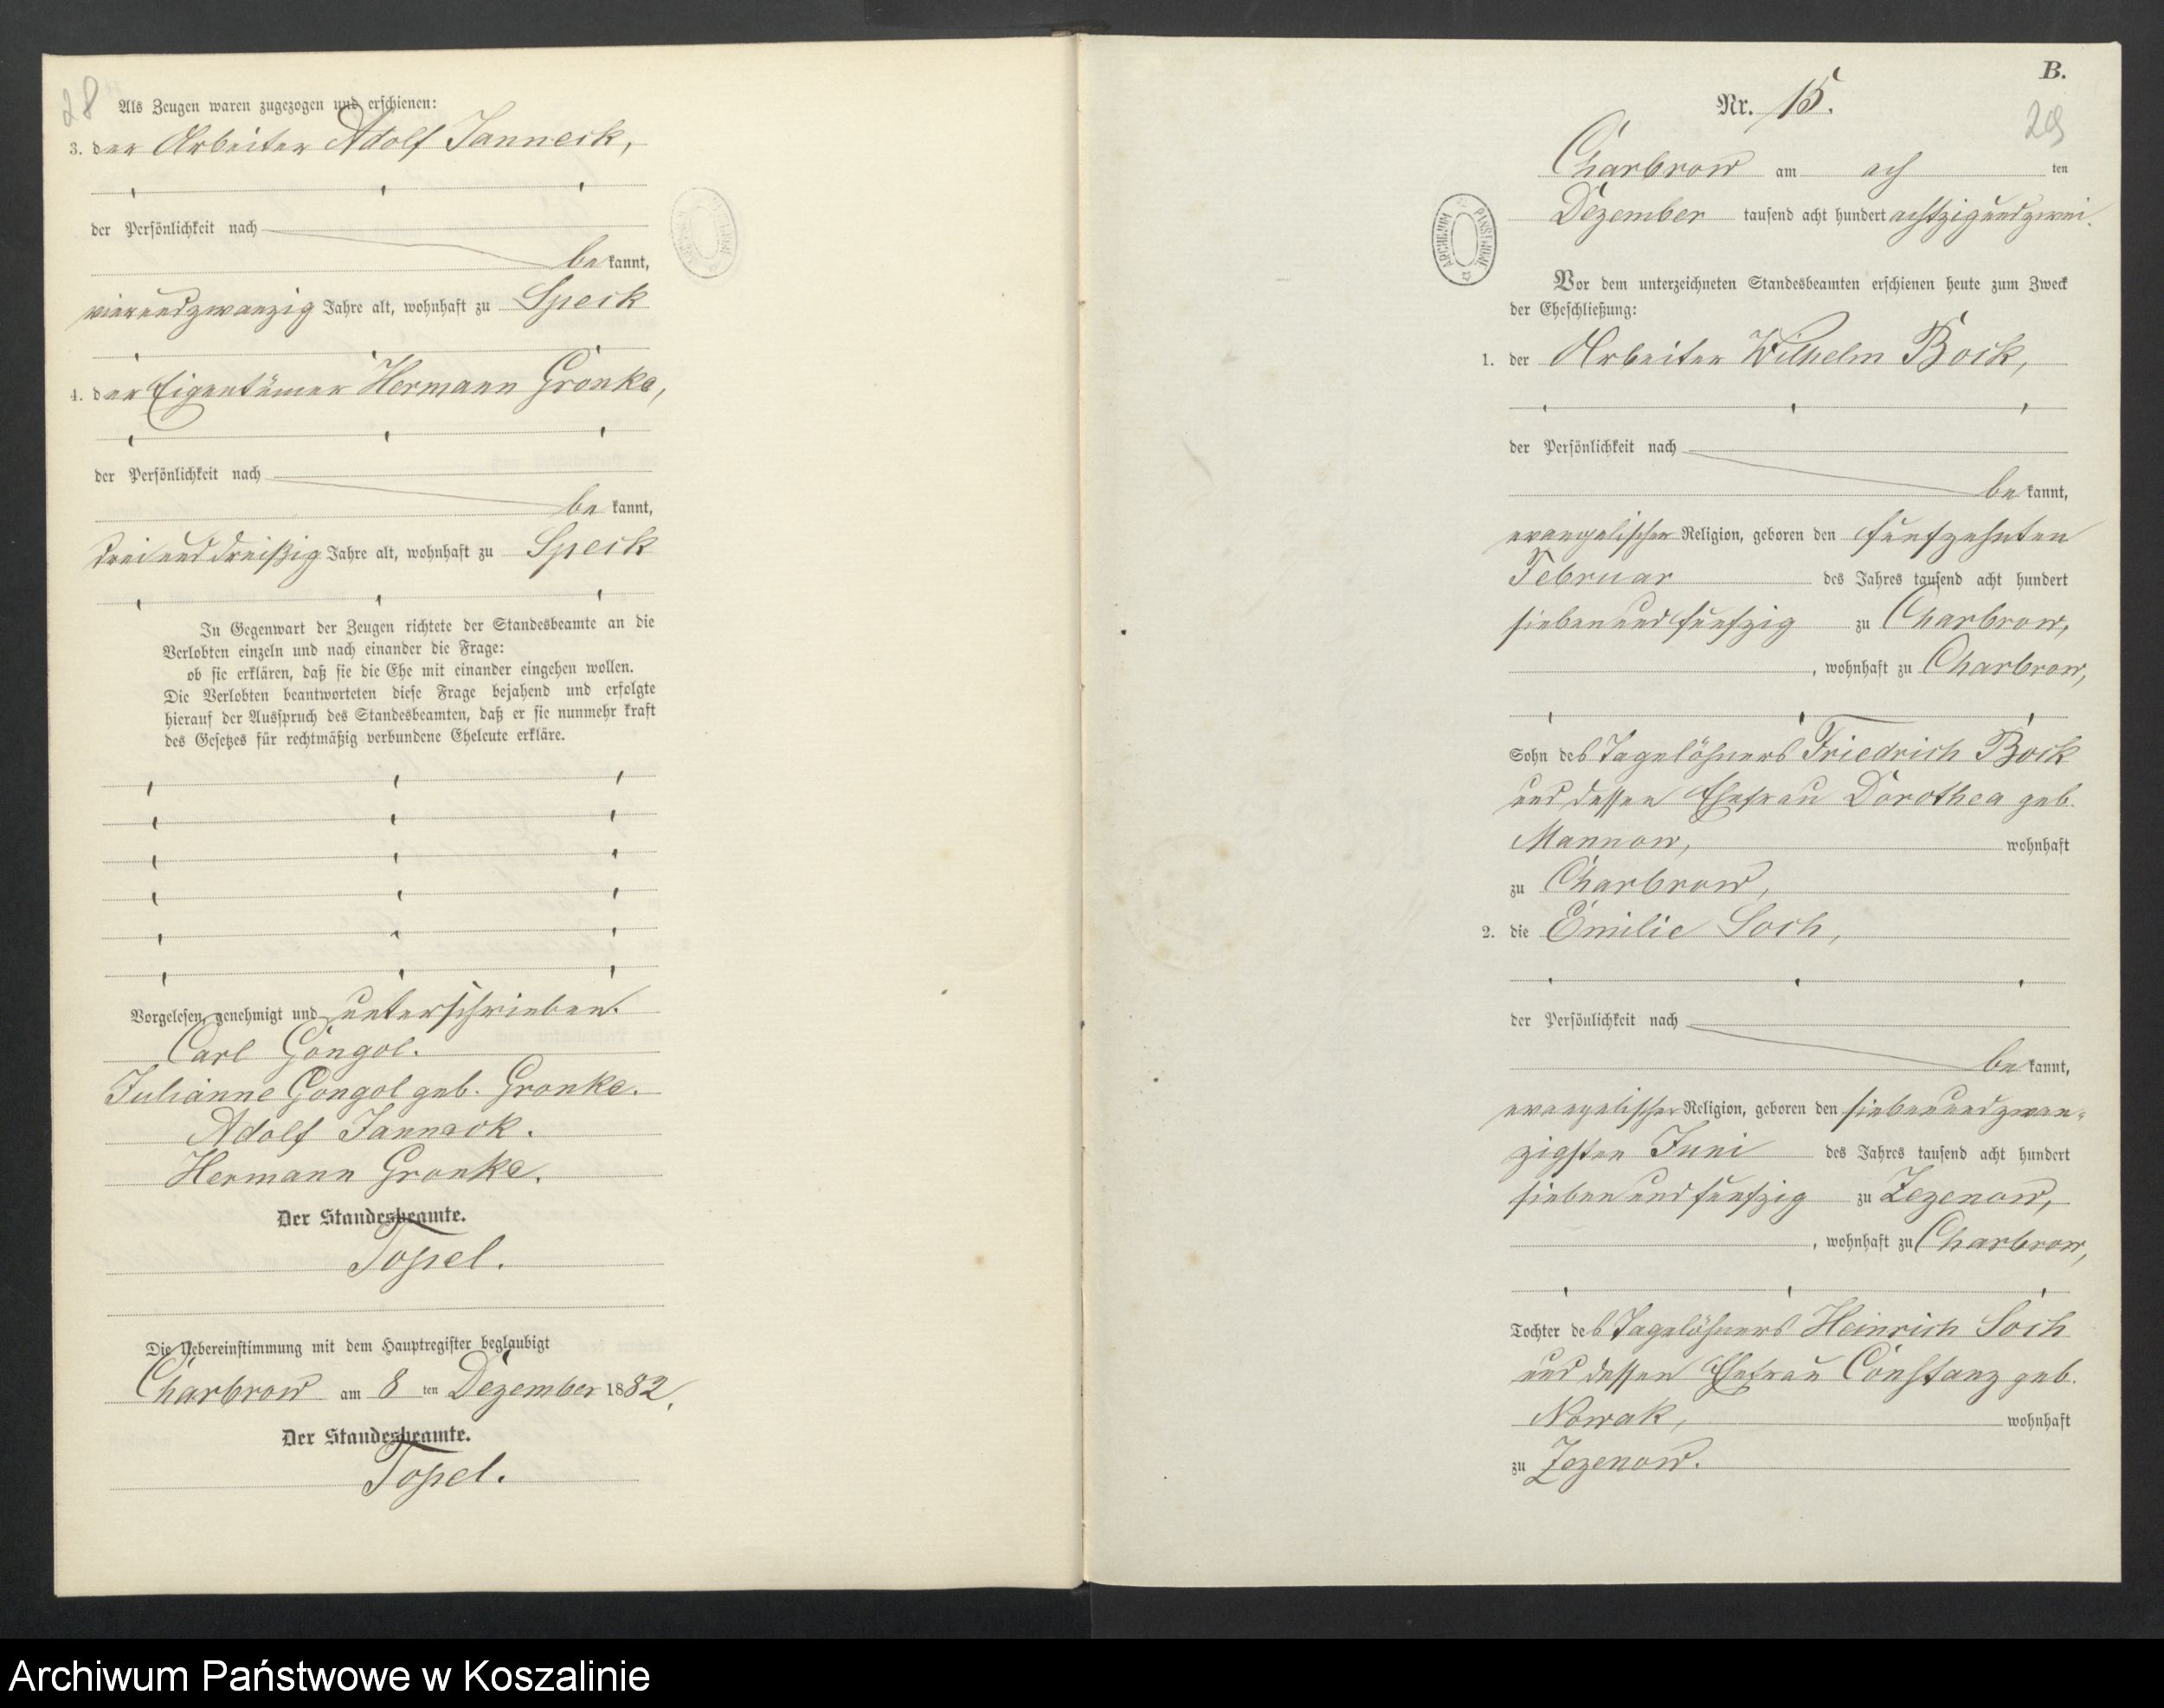 28
Als Zeugen waren zugezogen und erschienen:
3. der Arbeiter Adolf Janneck,
der Persönlichkeit nach
be kannt,
vierundzwanzig Jahre alt, wohnhaft zu Speck
4. der Eigentümer Hermann Gronke,
der Persönlichkeit nach
be kannt,
dreiunddreißig Jahre alt, wohnhaft zu Speck
In Gegenwart der Zeugen richtete der Standesbeamte an die
Verlobten einzeln und nach einander die Frage:
ob sie erklären, daß sie die Ehe mit einander eingehen wollen.
Die Verlobten beantworteten diese Frage bejahend und erfolgte
hierauf der Ausspruch des Standesbeamten, daß er sie nunmehr kraft
des Gesetzes für rechtmäßig verbundene Eheleute erkläre.
Vorgelesen, genehmigt und unterschrieben.
Carl Gongol.
Julianne Gongol geb. Gronke.
Adolf Janneck.
Hermann Gronke.
Der Standesbeamte.
Topel.
Die Uebereinstimmung mit dem Hauptregister beglaubigt
Charbrow am 8 ten Dezember 1882.
Der Standesbeamte.
Topel.
B.
Nr. 15.
29
Charbrow am ach ten
Dezember tausend acht hundert achtzigundzwei.
ARCHIWUM PAŃSTWOWE
Vor dem unterzeichneten Standesbeamten erschienen heute zum Zweck
der Eheschließung:
1. der Arbeiter Wilhelm Bock,
der Persönlichkeit nach
be kannt,
evangelischer Religion, geboren den fünfzehnten
Februar des Jahres tausend acht hundert
siebenundfünfzig zu Charbrow,
, wohnhaft zu Charbrow,
Sohn des Tagelöhners Friedrich Bock
und dessen Ehefrau Dorothea geb.
Mannow, wohnhaft
zu Charbrow,
2. die Emilie Soch,
der Persönlichkeit nach
be kannt,
evangelischer Religion, geboren den siebenundzwan-
zigsten Juni des Jahres tausend acht hundert
siebenundfünfzig zu Zezenow,
, wohnhaft zu Charbrow,
Tochter des Tagelöhners Heinrich Soch
und dessen Ehefrau Constanz geb.
Nowak, wohnhaft
zu Zezenow.
Archiwum Państwowe w Koszalinie